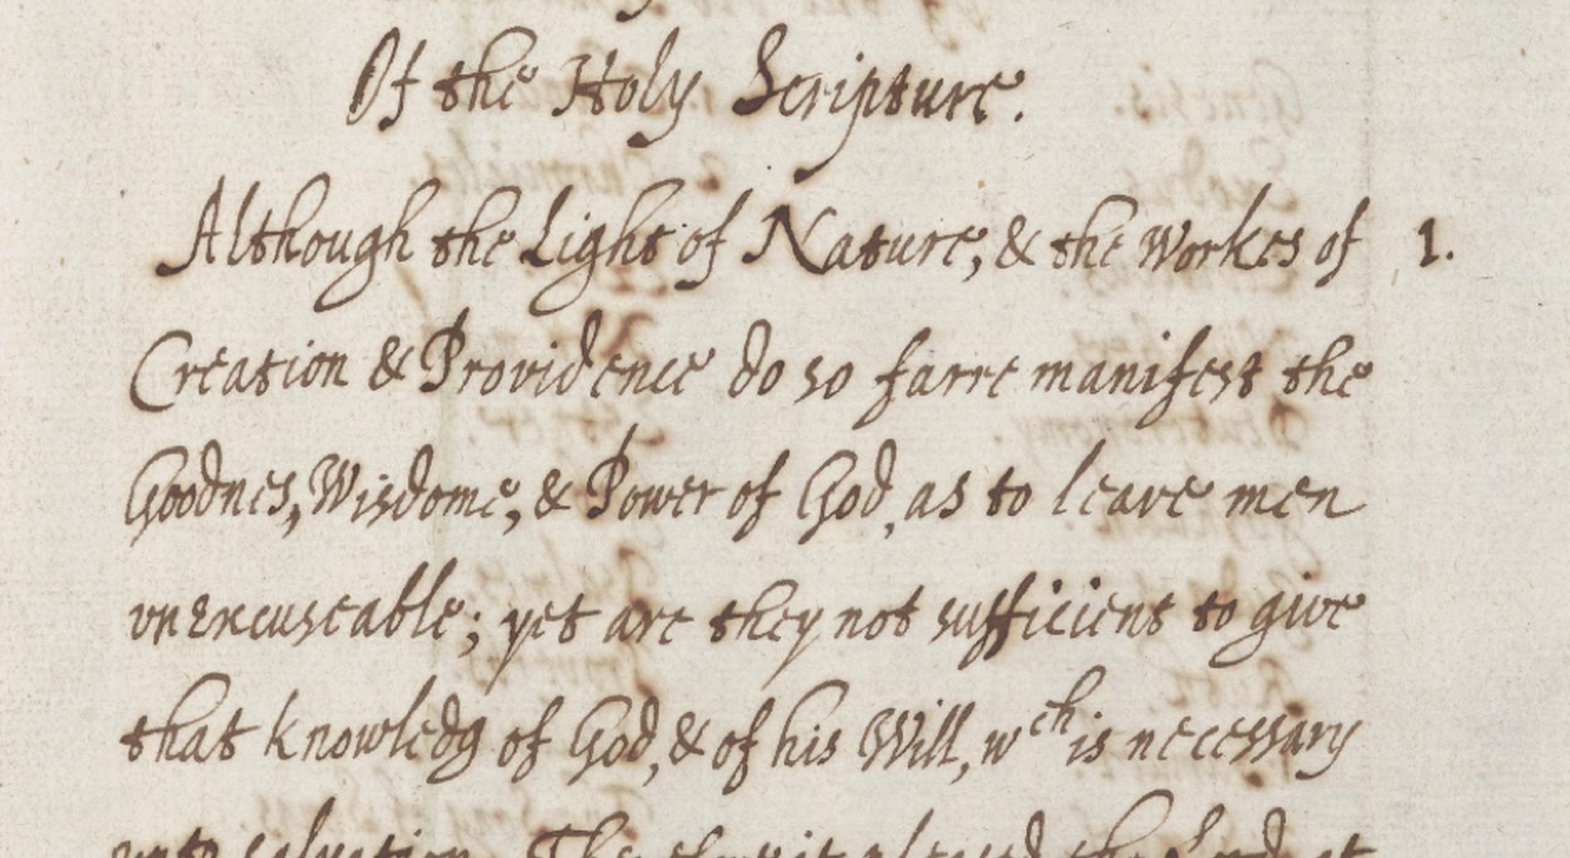 Of the Holy Scripture.
Although the Light of Nature, & the Workes of 1.
Creation & Providence do so farre manifest the
Goodnes, Wisdome, & Power of God, as to leave men
vnexcuseable; yet are they not sufficient to give
that knowledg of God, & of his Will, wch is necessary
vnto salvation. Therefore it pleased the Lord, at